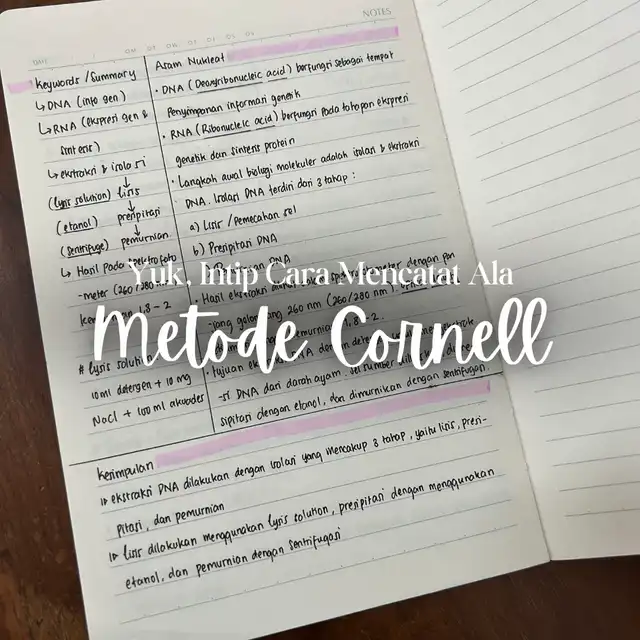 DATE
NOTES
Keywords / Summary
↳ DNA (info gen)
↳ RNA (ekspresi gen &
sintesis)
↳ ekstraksi & isolasi
(lysis solution) lisis
↓
(etanol) presipitasi
↓
(sentrifuge) pemurnian
↳ Hasil pada spektrofoto
-meter (260/280 nm)
1,8 - 2
# lysis solution
10 ml detergen + 10 mg
NaCl + 100 ml akuades
Asam Nukleat
• DNA (Deoxyribonucleic acid) berfungsi sebagai tempat
Penyimpanan informasi genetik
• RNA (Ribonucleic acid) berfungsi pada tahapan ekspresi
genetik dan sintesis protein
• Langkah awal biologi molekuler adalah isolasi & ekstraksi
DNA. Isolasi DNA terdiri dari 3 tahap :
a) Lisis / Pemecahan sel
b) Presipitasi DNA
DNA
• Hasil dengan pan
-jang gelombang 260 nm (260/280 nm)
1,8 - 2.
tujuan
-si DNA dari darah ayam. sel sumber
sipitasi dengan etanol, dan dimurnikan dengan sentrifugasi.
Yuk, Intip Cara Mencatat Ala
Metode Cornell
Kesimpulan
⇥ ekstraksi DNA dilakukan dengan isolasi yang mencakup 3 tahap, yaitu lisis, presi-
pitasi, dan pemurnian
⇥ lisis dilakukan menggunakan lysis solution, presipitasi dengan menggunakan
etanol, dan pemurnian dengan sentrifugasi